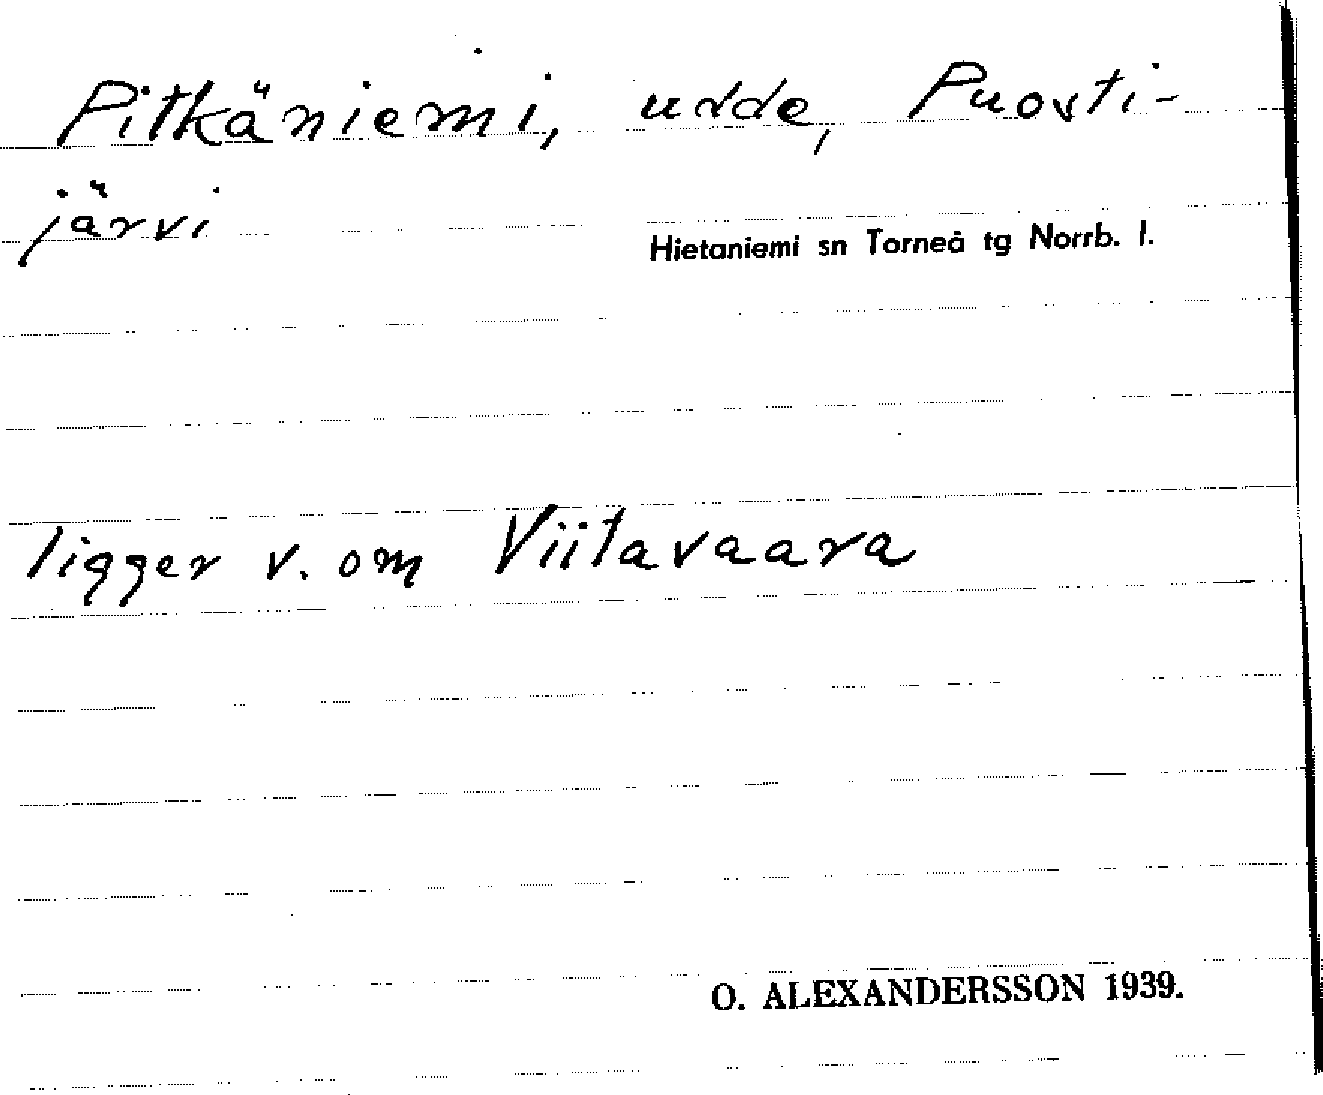 Pitkäniemi, udde, Puosti-
järvi
Hietaniemi sn Torneå tg Norrb. l.
ligger v. om Viitavaara
O. ALEXANDERSSON 1939.